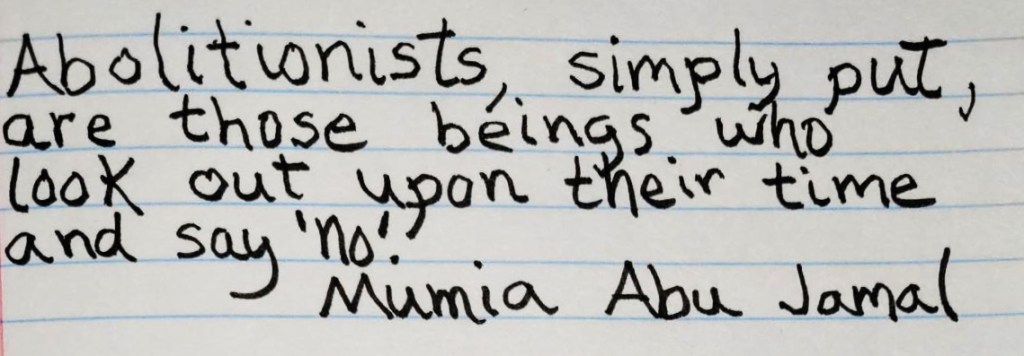 Abolitionists, simply put,
are those beings who
look out upon their time
and say 'no'.
Mumia Abu Jamal